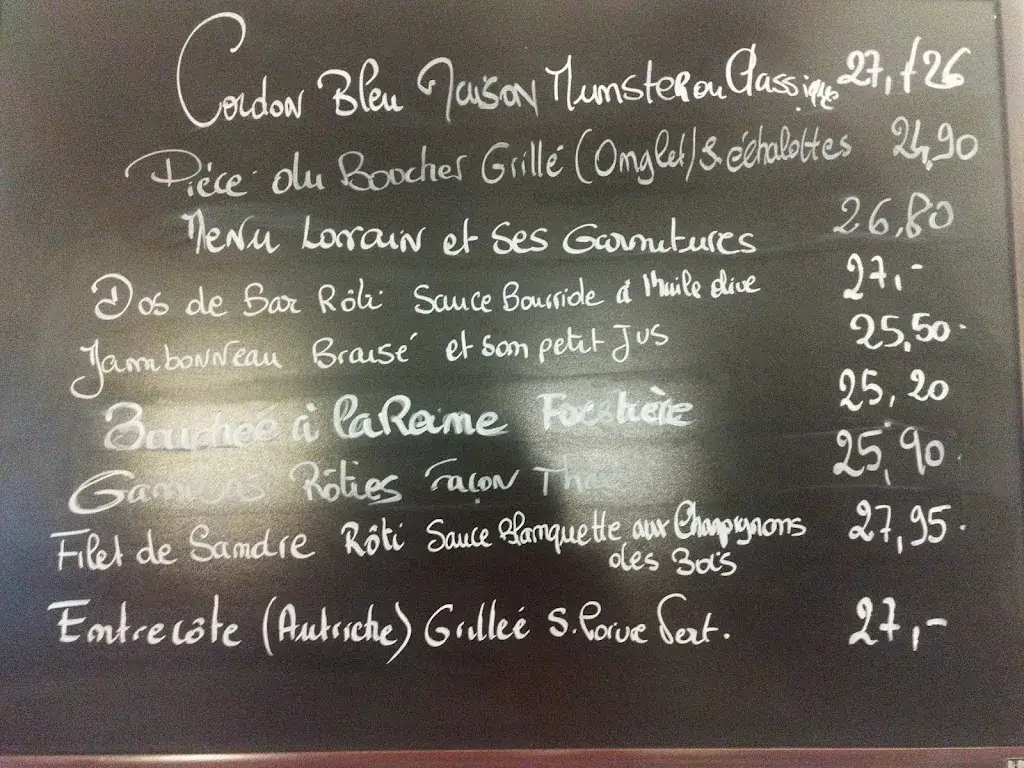 Cordon Bleu Maison Munster ou Classique 27,-/26
Pièce du Boocher Grillé (Onglet) S. échalottes 24,90
Menu Lorrain et ses Garnitures 26,80
Dos de Bar Rôti Sauce Bourride à l'huile olive 27,-
Jambonneau Braisé et son petit Jus 25,50.
Bouchée à la Reine Forestière 25,20
Gambas Rôties Façon Thaï 25,90.
Filet de Sandre Rôti Sauce Blanquette aux Champignons 27,95.
des Bois
Entrecôte (Autriche) Grilleé S. Poivre Vert. 27,-